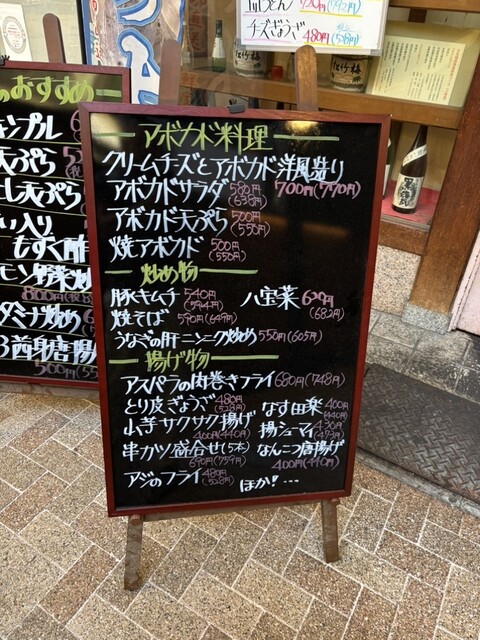 肛うどん 720円(792円)
チーズぎょうざ 480円(528円)
のおすすめ
松竹梅
アボカド料理
クリームチーズとアボカド洋風造り
700円(770円)
アボカドサラダ 580円(638円)
アボカド天ぷら 500円(550円)
焼アボカド 500円(550円)
炒め物
豚キムチ 540円(594円) 八宝菜 620円(682円)
焼そば 590円(649円)
うなぎの肝ニンニク炒め 550円(605円)
揚げ物
アスパラの肉巻きフライ 680円(748円)
とり皮ぎょうざ 480円(528円) なす田楽 400円(440円)
山芋サクサク揚げ 400円(440円) 揚シューマイ 430円(473円)
串カツ盛合せ(5本) 690円(759円) なんこつ唐揚げ 400円(440円)
アジのフライ 480円(528円) ほか!…
ャンプル
天ぷら
し天ぷら
い入り
もずく酢
モン野菜炒め
800円
タミナ炒め
唐揚
500円(55